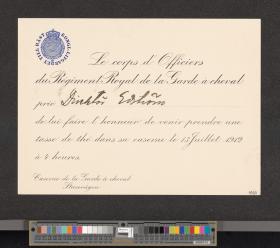 KONGL. LIFGARDET TILL HÄST
Le corps d'Officiers
du Régiment Royal de la Garde à cheval
prie Direktör Edström
de lui faire l'honneur de venir prendre une
tasse de thé dans sa caserne le 15 Juillet 1912
à 4 heures.
Caserne de la Garde à cheval